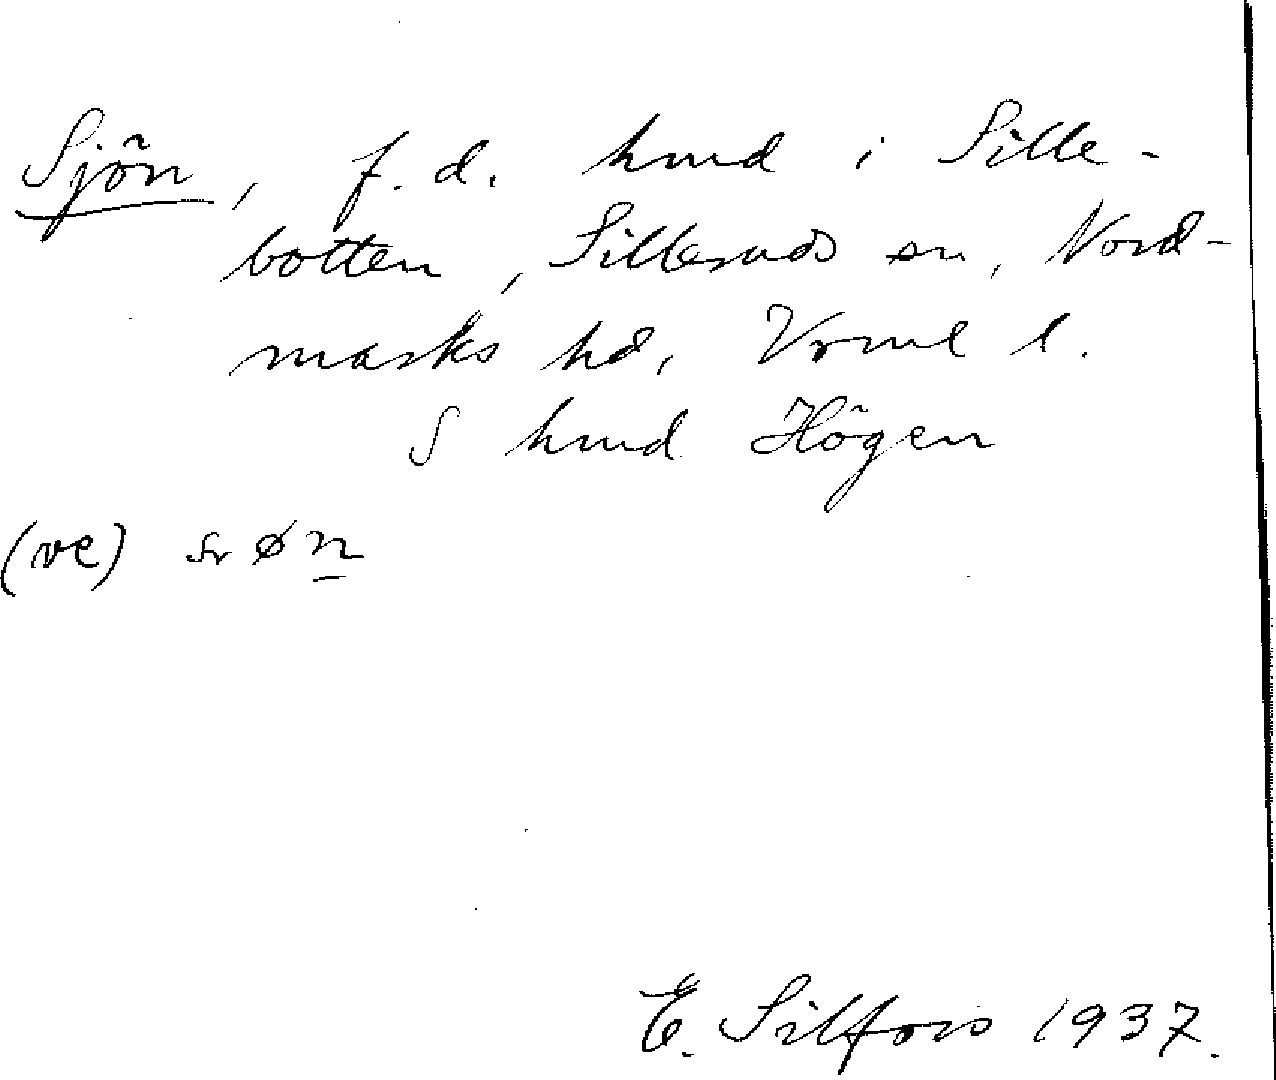 Sjön, f.d. hmd i Sille-
botten, Silleruds sn, Nord-
marks hd, Vrml l.
S hmd Högen
(ve)
E. Silfors 1937.